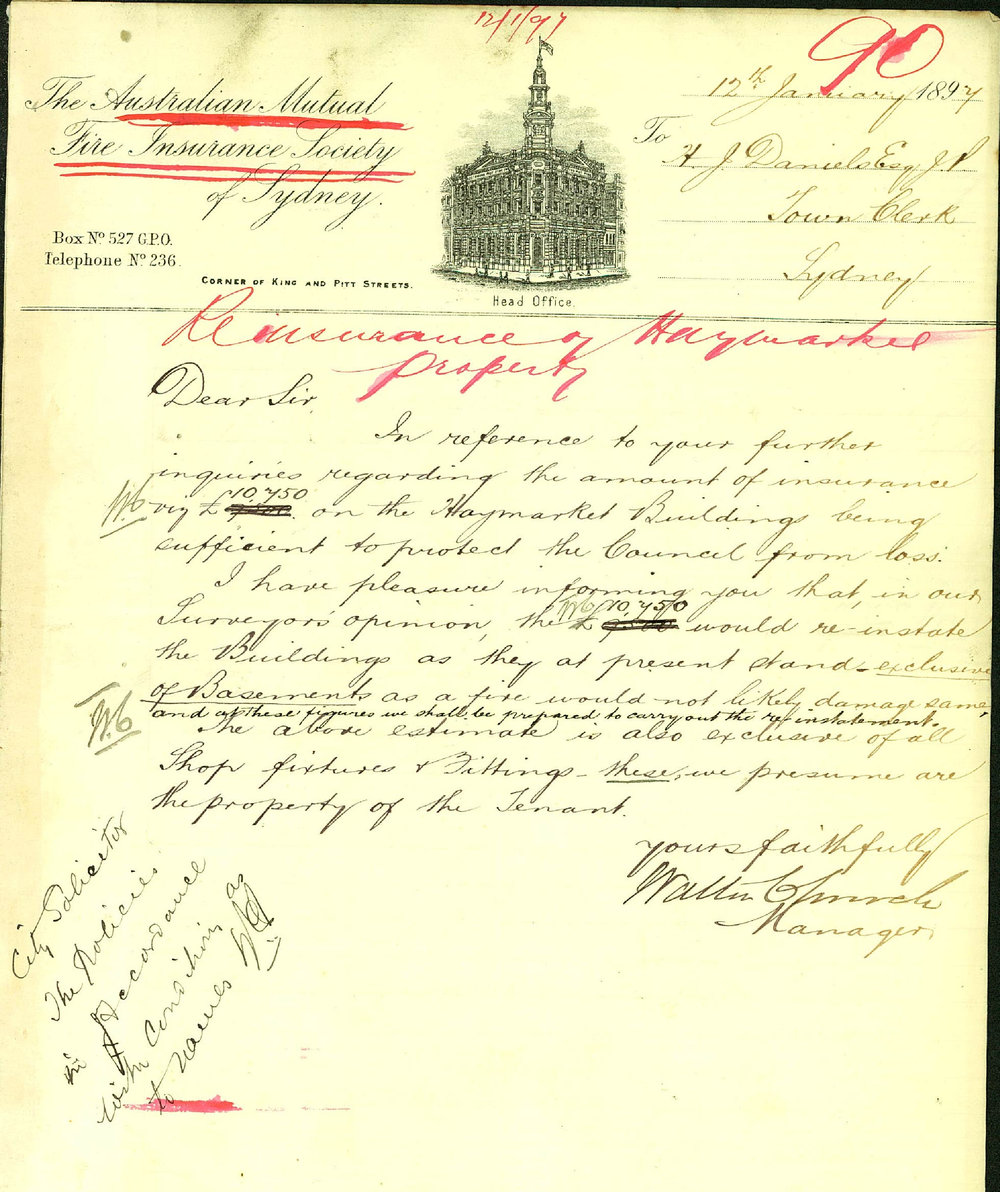 12/1/97
90
The Australian Mutual
Fire Insurance Society
of Sydney.
Box No 527 G.P.O.
Telephone No 236.
Corner of King and Pitt Streets.
Head Office.
12th January 1897
To
H. J. Daniels Esq J.P.
Town Clerk
Sydney
Re insurance of Haymarket
property
Dear Sir,
In reference to your further
inquiries regarding the amount of insurance
W.C viz £ 10,750 on the Haymarket Buildings being
sufficient to protect the Council from loss.
I have pleasure informing you that, in our
Surveyors opinion, the W.C £ 10,750 would re-instate
the Buildings as they at present stand - exclusive
of Basements as a fire would not likely damage same
W.C and at these figures we shall be prepared to carry out the re-instatement.
The above estimate is also exclusive of all
Shop fixtures & Fittings - these, we presume are
the property of the Tenant.
Yours faithfully
Walter Church
Manager
City Solicitor
The Policies
in Accordance
with Conditions as
to names